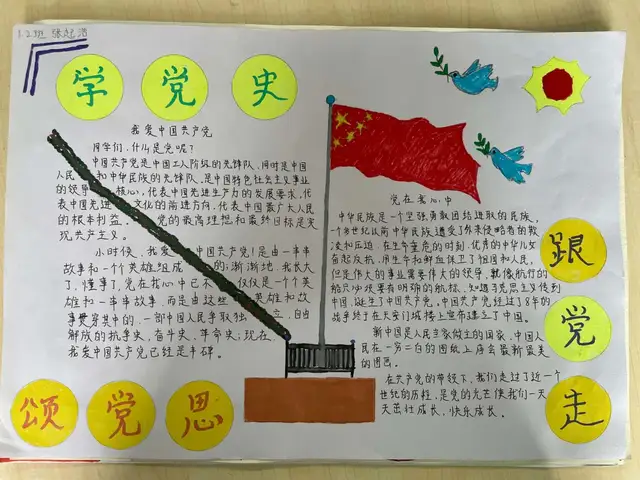 1.2班
学党史
我爱中国共产党
同学们,什么是党呢?
中国共产党是中国工人阶级的先锋队,同时是中国
人民和中华民族的先锋队,是中国特色社会主义事业
的领导核心,代表中国先进生产力的发展要求,代
表中国先进文化的前进方向,代表中国最广大人民
的根本利益。党的最高理想和最终目标是实
现共产主义。
小时候,我爱中国共产党!是由一串串
故事和一个英雄组成的渐渐地,我长大
了,懂事了,党在我心中已不仅仅是一个个英
雄和一串串故事,而是由这些英雄和故
事贯穿其中的,一部中国人民争取独立,自由
解放的抗争史,奋斗史,革命史;现在,
我爱中国共产党已经是丰碑。
颂党恩
党在我心中
中华民族是一个坚强勇敢团结进取的民族,
一个多世纪以前中华民族遭受了外来侵略者的欺
凌和压迫,在生与重危的时刻,优秀的中华儿女
奋起反抗,用生命和鲜血保卫了祖国和人民,
但是伟大的事业需要伟大的领导,就像航行的
船只必须要有明确的航标,知道马克思主义传到
中国,诞生了中国共产党,中国共产党经过28年的
战争终于在天安门城楼上宣布建立了中国。
新中国是人民当家做主的国家,中国人
民在一穷二白的图纸上画最新最美
的图画。
在共产党的带领下,我们走过了近一个
世纪的历程,是党的光芒使我们一天
天茁壮成长,快乐成长。
跟党走